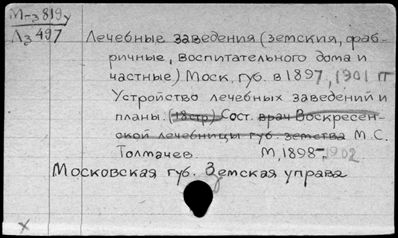 М-з 819у
Лз 497
Лечебные заведения (земския, фаб-
ричные, воспитательного дома и
частные) Моск. губ. в 1897, 1901 гг
Устройство лечебных заведений и
планы. (18 стр.) Сост. врач Воскресен-
ской лечебницы губ. земства М. С.
Толмачев. М, 1898-1902
Московская губ. Земская управа
X